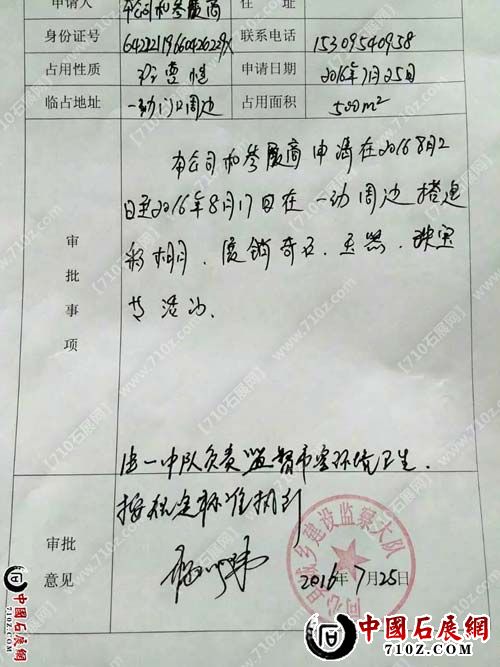 申请人 本公司和参展商 住 址
身份证号 64222119660426229X 联系电话 15309540958
占用性质 临时性 申请日期 2016年7月25日
临占地址 一幼门口周边 占用面积 500m²
审批事项
本公司和参展商申请在2016 8月2
日至2016年8月17日在一幼周边搭建
彩棚,展销奇石、玉器、珠宝
等活动.
由一中队负责监督市容环境卫生.
审批意见
按规定标准执行
同心县城乡建设监察大队
2016年7月25日
【710石展网】
www.710z.com
中國石展網
710Z.COM
中國石展網
710Z.COM